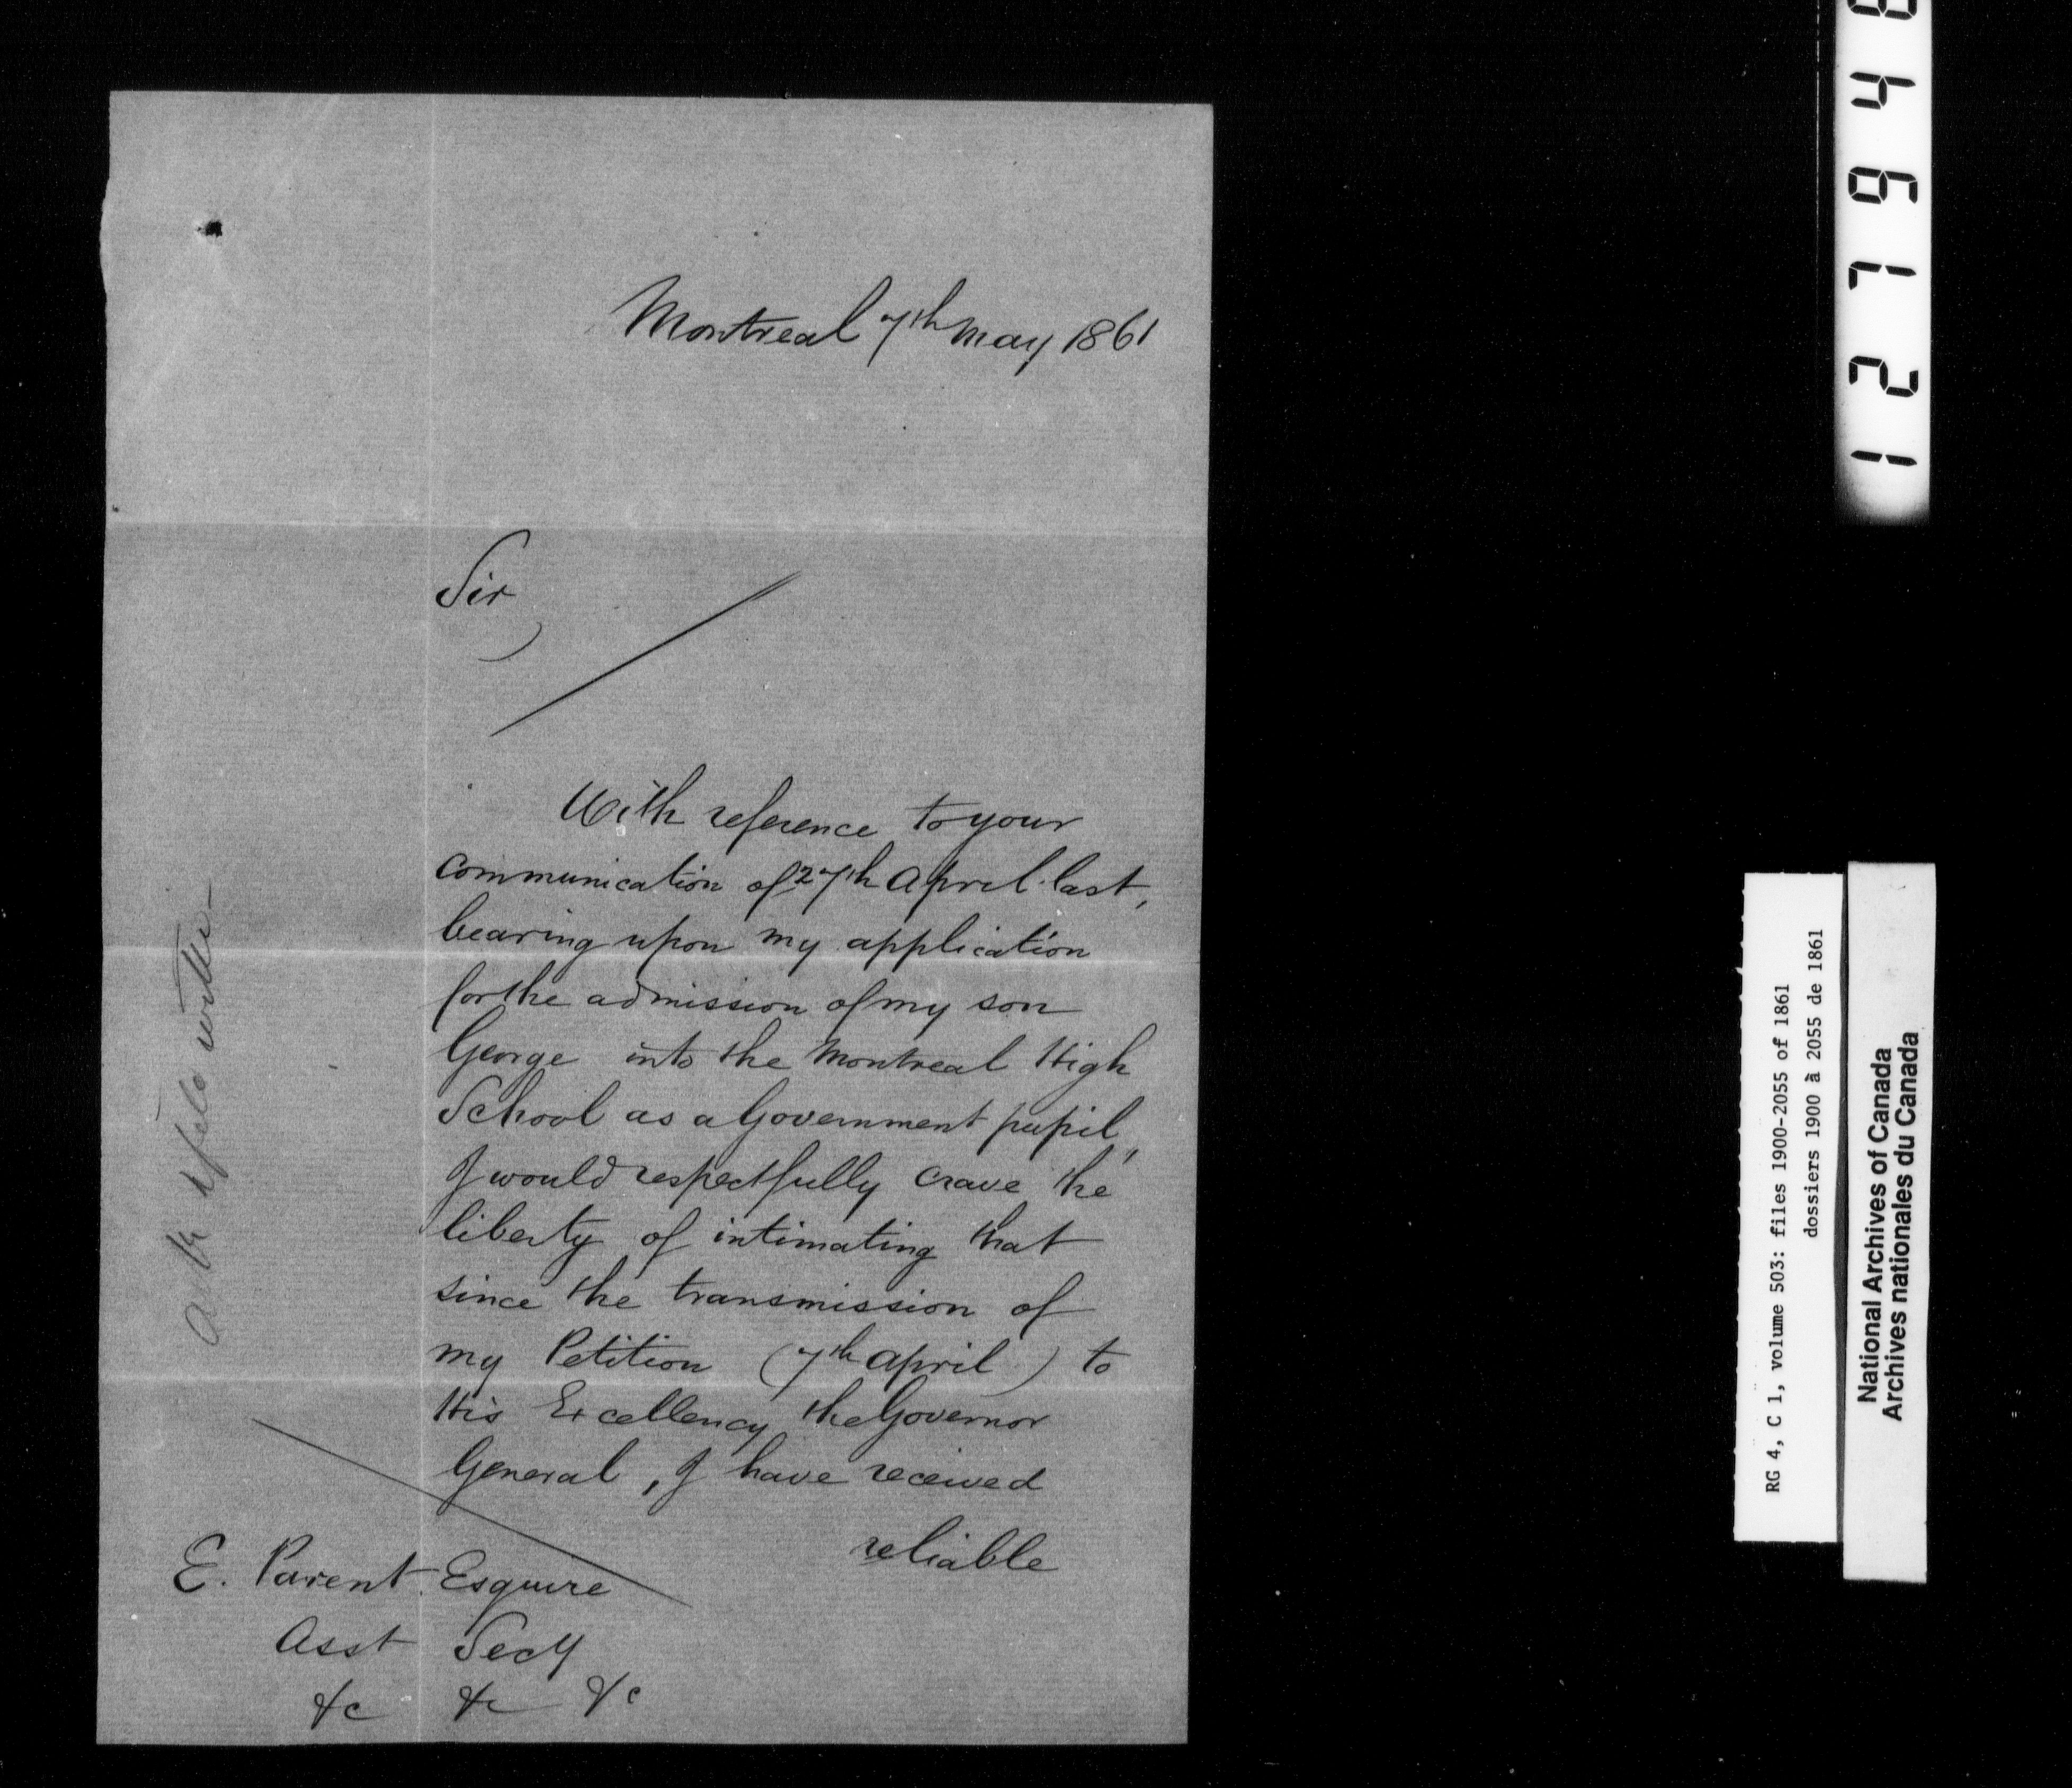 Montreal 7th May 1861
Sir
With reference to your
communication of 27th April last,
bearing upon my application
for the admission of my son
George into the Montreal High
School as a Government pupil,
I would respectfully crave the
liberty of intimating that
since the transmission of
my Petition (7th April) to
His Excellency the Governor
General, I have received
reliable
E. Parent Esquire
Asst Secy
&c &c &c
12794
RG 4, C 1, volume 503: files 1900-2055 of 1861
dossiers 1900 à 2055 de 1861
National Archives of Canada
Archives nationales du Canada